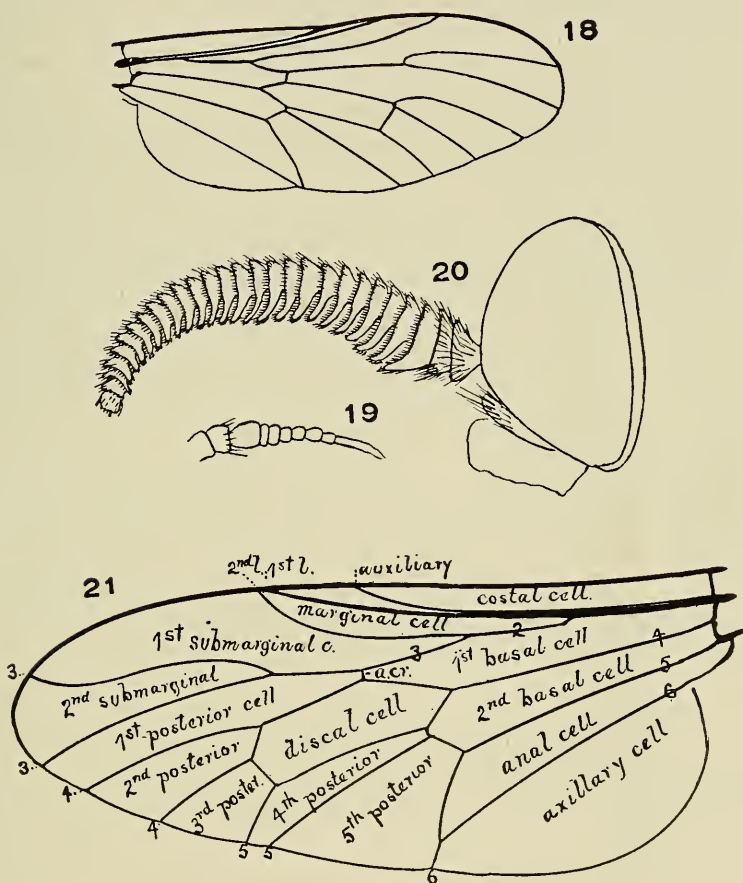 18
20
19
21
2nd l. 1st l. auxiliary
costal cell.
marginal cell
1st submarginal c.
2
3
a.cr.
1st basal cell
4
3
2nd submarginal
2nd basal cell
5
6
1st posterior cell
discal cell
anal cell
axillary cell
2nd posterior
3rd poster.
4th posterior
5th posterior
3
4
4
5
5
6